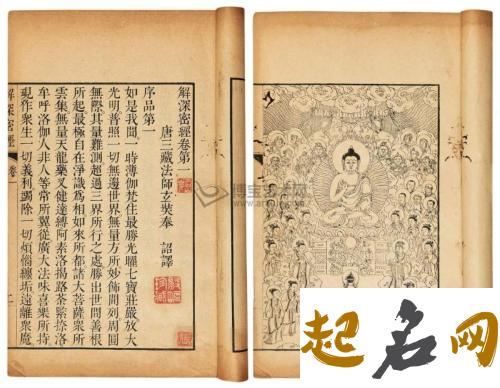 解深密經卷第一
唐三藏法師玄奘奉 詔譯
序品第一
如是我聞一時薄伽梵住最勝光曜七寶莊嚴放大
光明普照一切無邊世界無量方所妙飾間列周圓
無際其量難測超過三界所行之處勝出世間善根
所起最極自在淨識為相如來所都諸大菩薩衆所
雲集無量天龍藥叉健達縛阿素洛揭路荼緊捺洛
牟呼洛伽人非人等常所翼從廣大法味喜樂所持
現作衆生一切義利蠲除一切煩惱纏垢遠離衆魔
解深密經 卷一 二
起名网